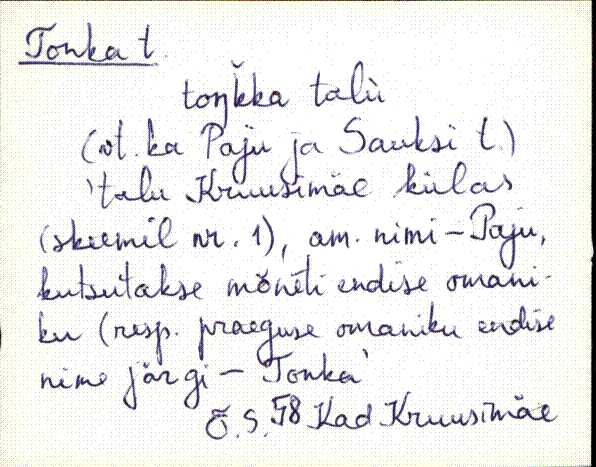 Tonka t.
toŋ̆kka talù
(vt. ka Paju ja Sauksi t.)
'talu Kruusimäe külas
(skeemil nr. 1), am. nimi – Paju,
kutsutakse mõnēti endise omani-
ku (resp. praeguse omaniku endise
nime järgi – Tonka'
E.S. 58 Kad Kruusimäe